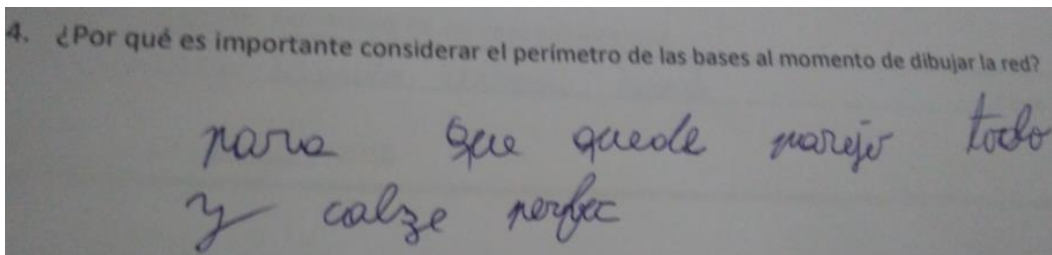 4. ¿Por qué es importante considerar el perímetro de las bases al momento de dibujar la red?
para que quede parejo todo
y calze perfec